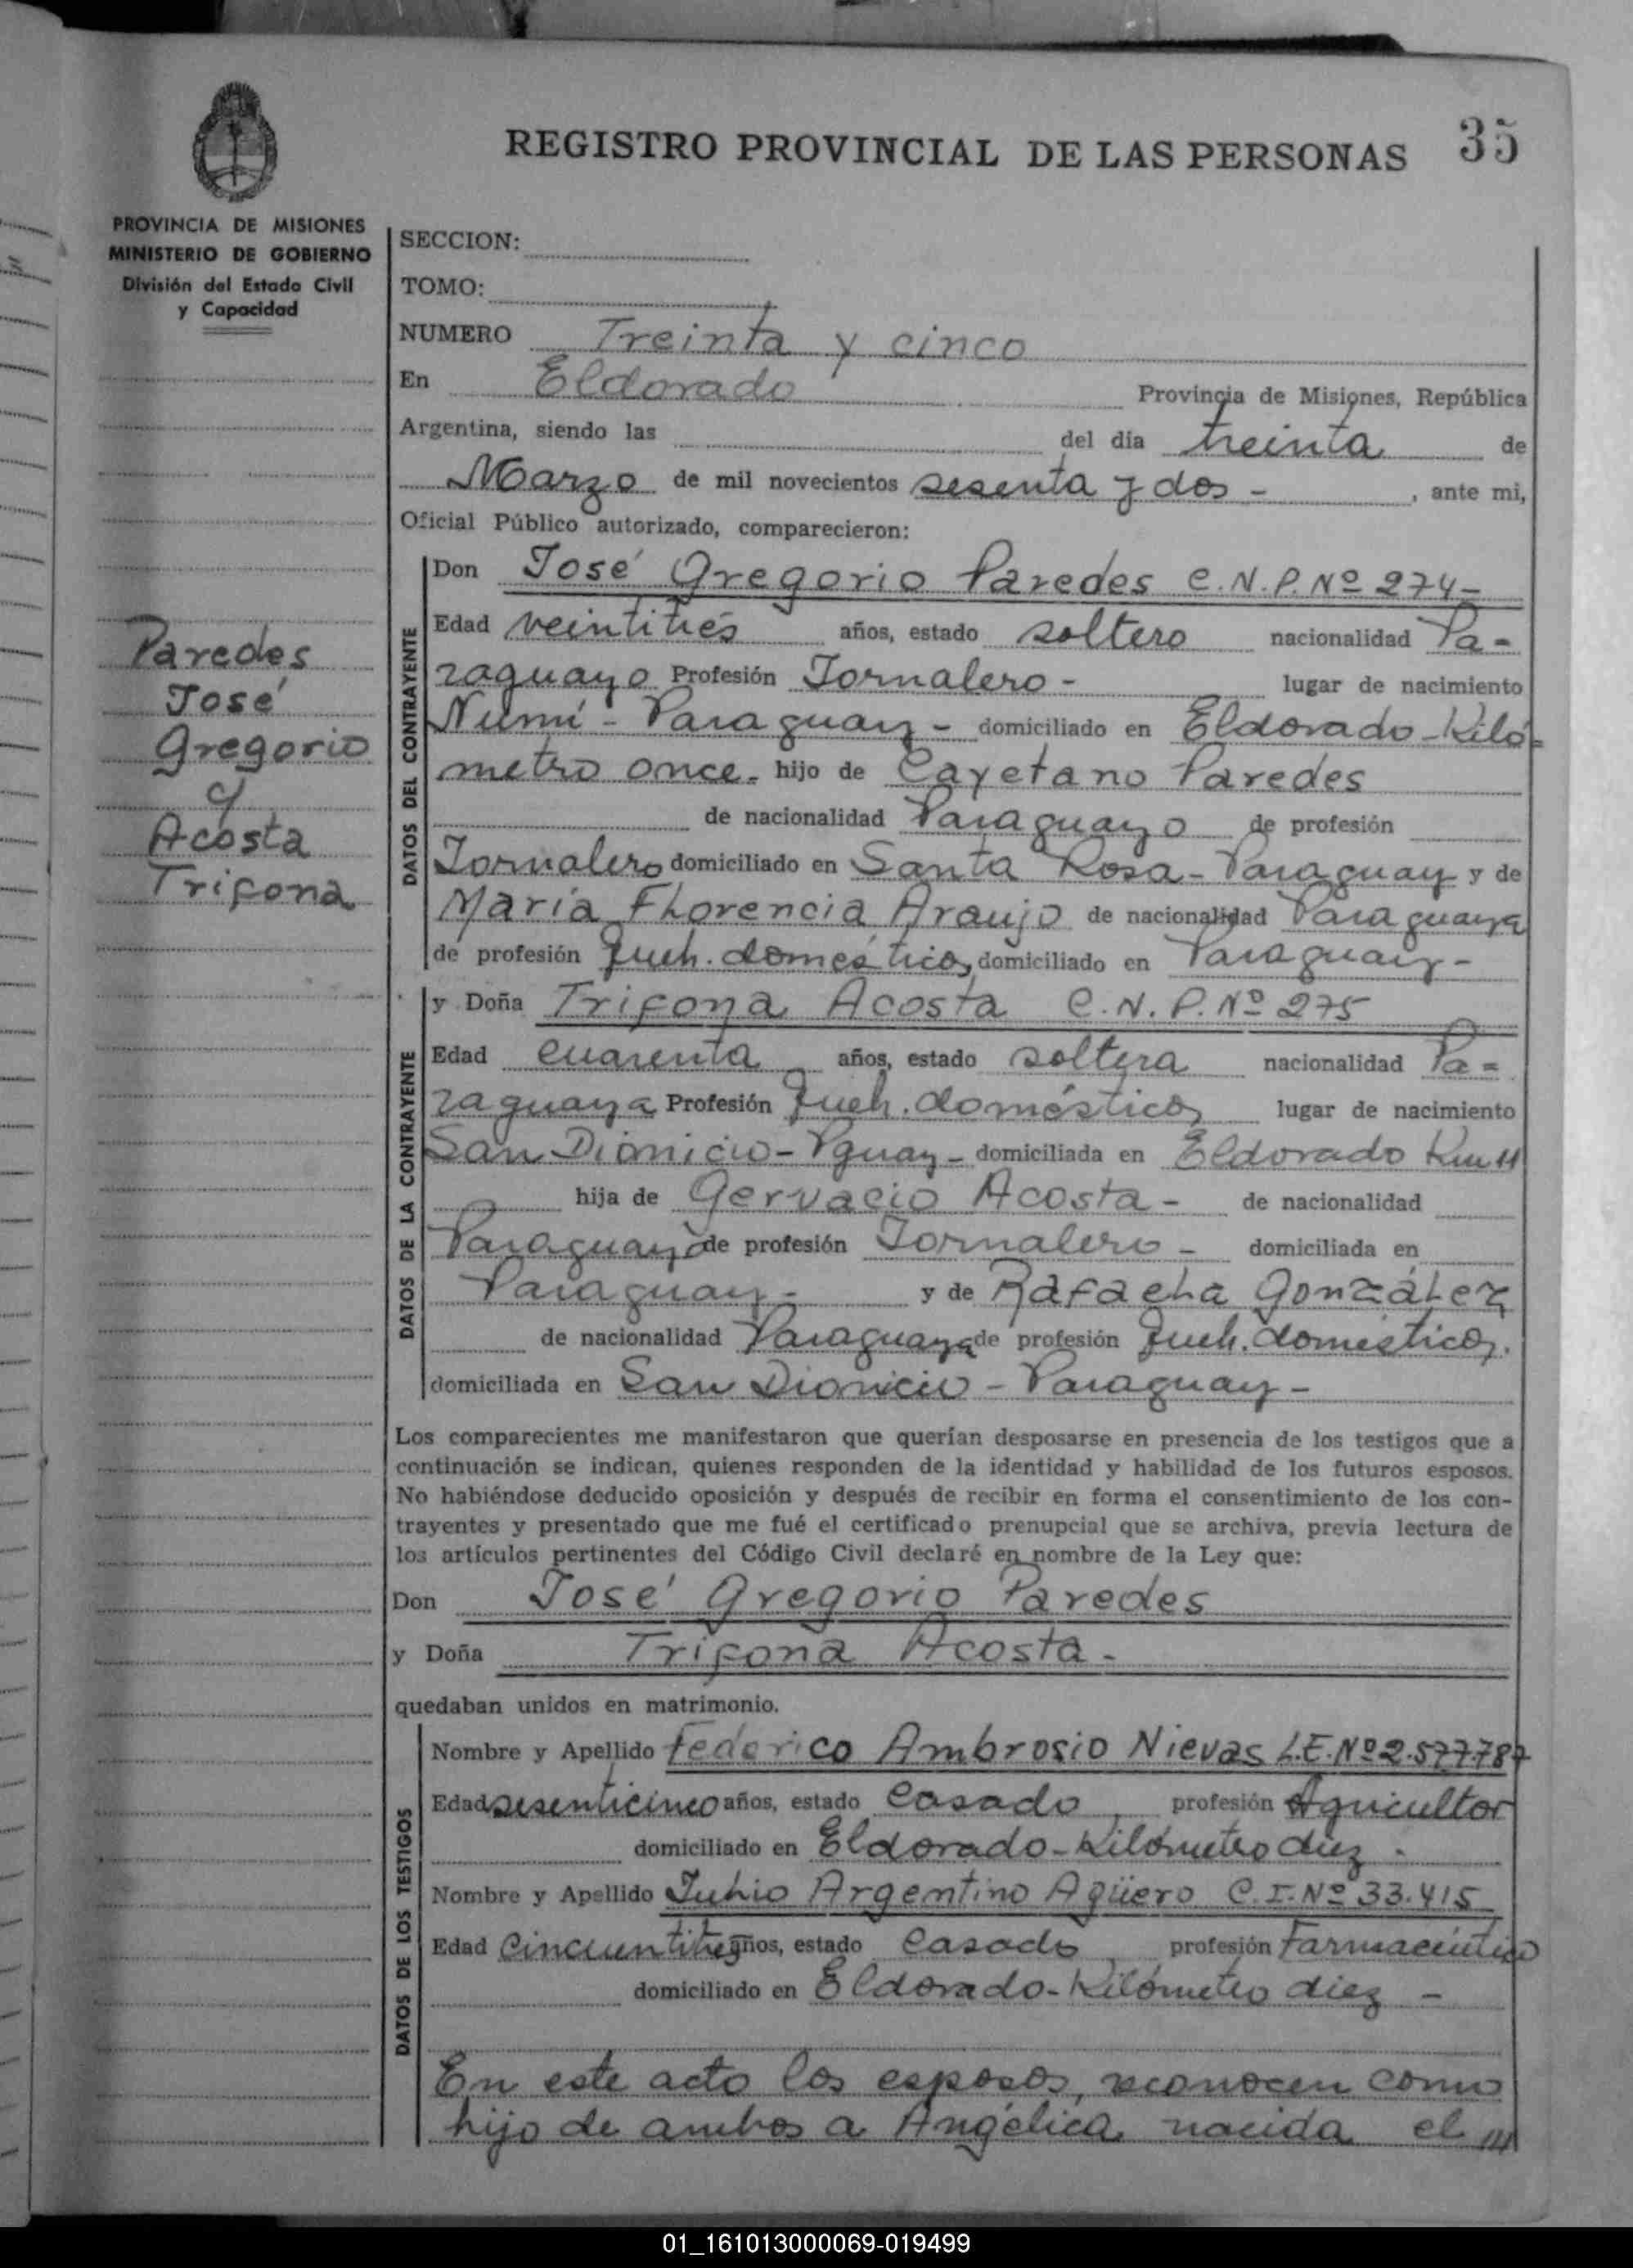 REGISTRO PROVINCIAL DE LAS PERSONAS 35
PROVINCIA DE MISIONES
MINISTERIO DE GOBIERNO
División del Estado Civil
y Capacidad
Paredes
José
Gregorio
y
Acosta
Trifona
SECCION:
TOMO:
NUMERO Treinta y cinco
En Eldorado Provincia de Misiones, República
Argentina, siendo las del día treinta de
Marzo de mil novecientos sesenta y dos - , ante mi,
Oficial Público autorizado, comparecieron:
DATOS DEL CONTRAYENTE
Don José Gregorio Paredes C.N.P. Nº 274-
Edad veintitrés años, estado soltero nacionalidad Pa-
raguayo Profesión Jornalero - lugar de nacimiento
Ñumí - Paraguay - domiciliado en Eldorado - Kiló-
metro once. hijo de Cayetano Paredes
de nacionalidad Paraguayo de profesión
Jornalero domiciliado en Santa Rosa - Paraguay y de
María Fhorencia Araujo de nacionalidad Paraguaya
de profesión Queh. domésticos, domiciliado en Paraguay -
DATOS DE LA CONTRAYENTE
y Doña Trifona Acosta C.N.P. Nº 275
Edad cuarenta años, estado soltera nacionalidad Pa=
raguaya Profesión Queh. domésticos lugar de nacimiento
San Dionicio - Pguay - domiciliada en Eldorado Km 11
hija de Gervacio Acosta - de nacionalidad
Paraguayo de profesión Jornalero - domiciliada en
Paraguay - y de Rafaeha Gonzáhez
de nacionalidad Paraguaya de profesión Queh. domésticos.
domiciliada en San Dionicio - Paraguay -
Los comparecientes me manifestaron que querían desposarse en presencia de los testigos que a
continuación se indican, quienes responden de la identidad y habilidad de los futuros esposos.
No habiéndose deducido oposición y después de recibir en forma el consentimiento de los con-
trayentes y presentado que me fué el certificado prenupcial que se archiva, previa lectura de
los artículos pertinentes del Código Civil declaré en nombre de la Ley que:
Don José Gregorio Paredes
y Doña Trifona Acosta -
quedaban unidos en matrimonio.
DATOS DE LOS TESTIGOS
Nombre y Apellido Federico Ambrosio Nievas L.E. Nº 2.577.787
Edad sesenticinco años, estado casado profesión Agricultor
domiciliado en Eldorado - Kilómetro diez .
Nombre y Apellido Juhio Argentino Agüero C.I. Nº 33.415
Edad cincuentitres años, estado casado profesión Farmacéutico
domiciliado en Eldorado - Kilómetro diez -
En este acto los esposos, reconocen como
hijo de ambos a Angélica nacida el
01_161013000069-019499